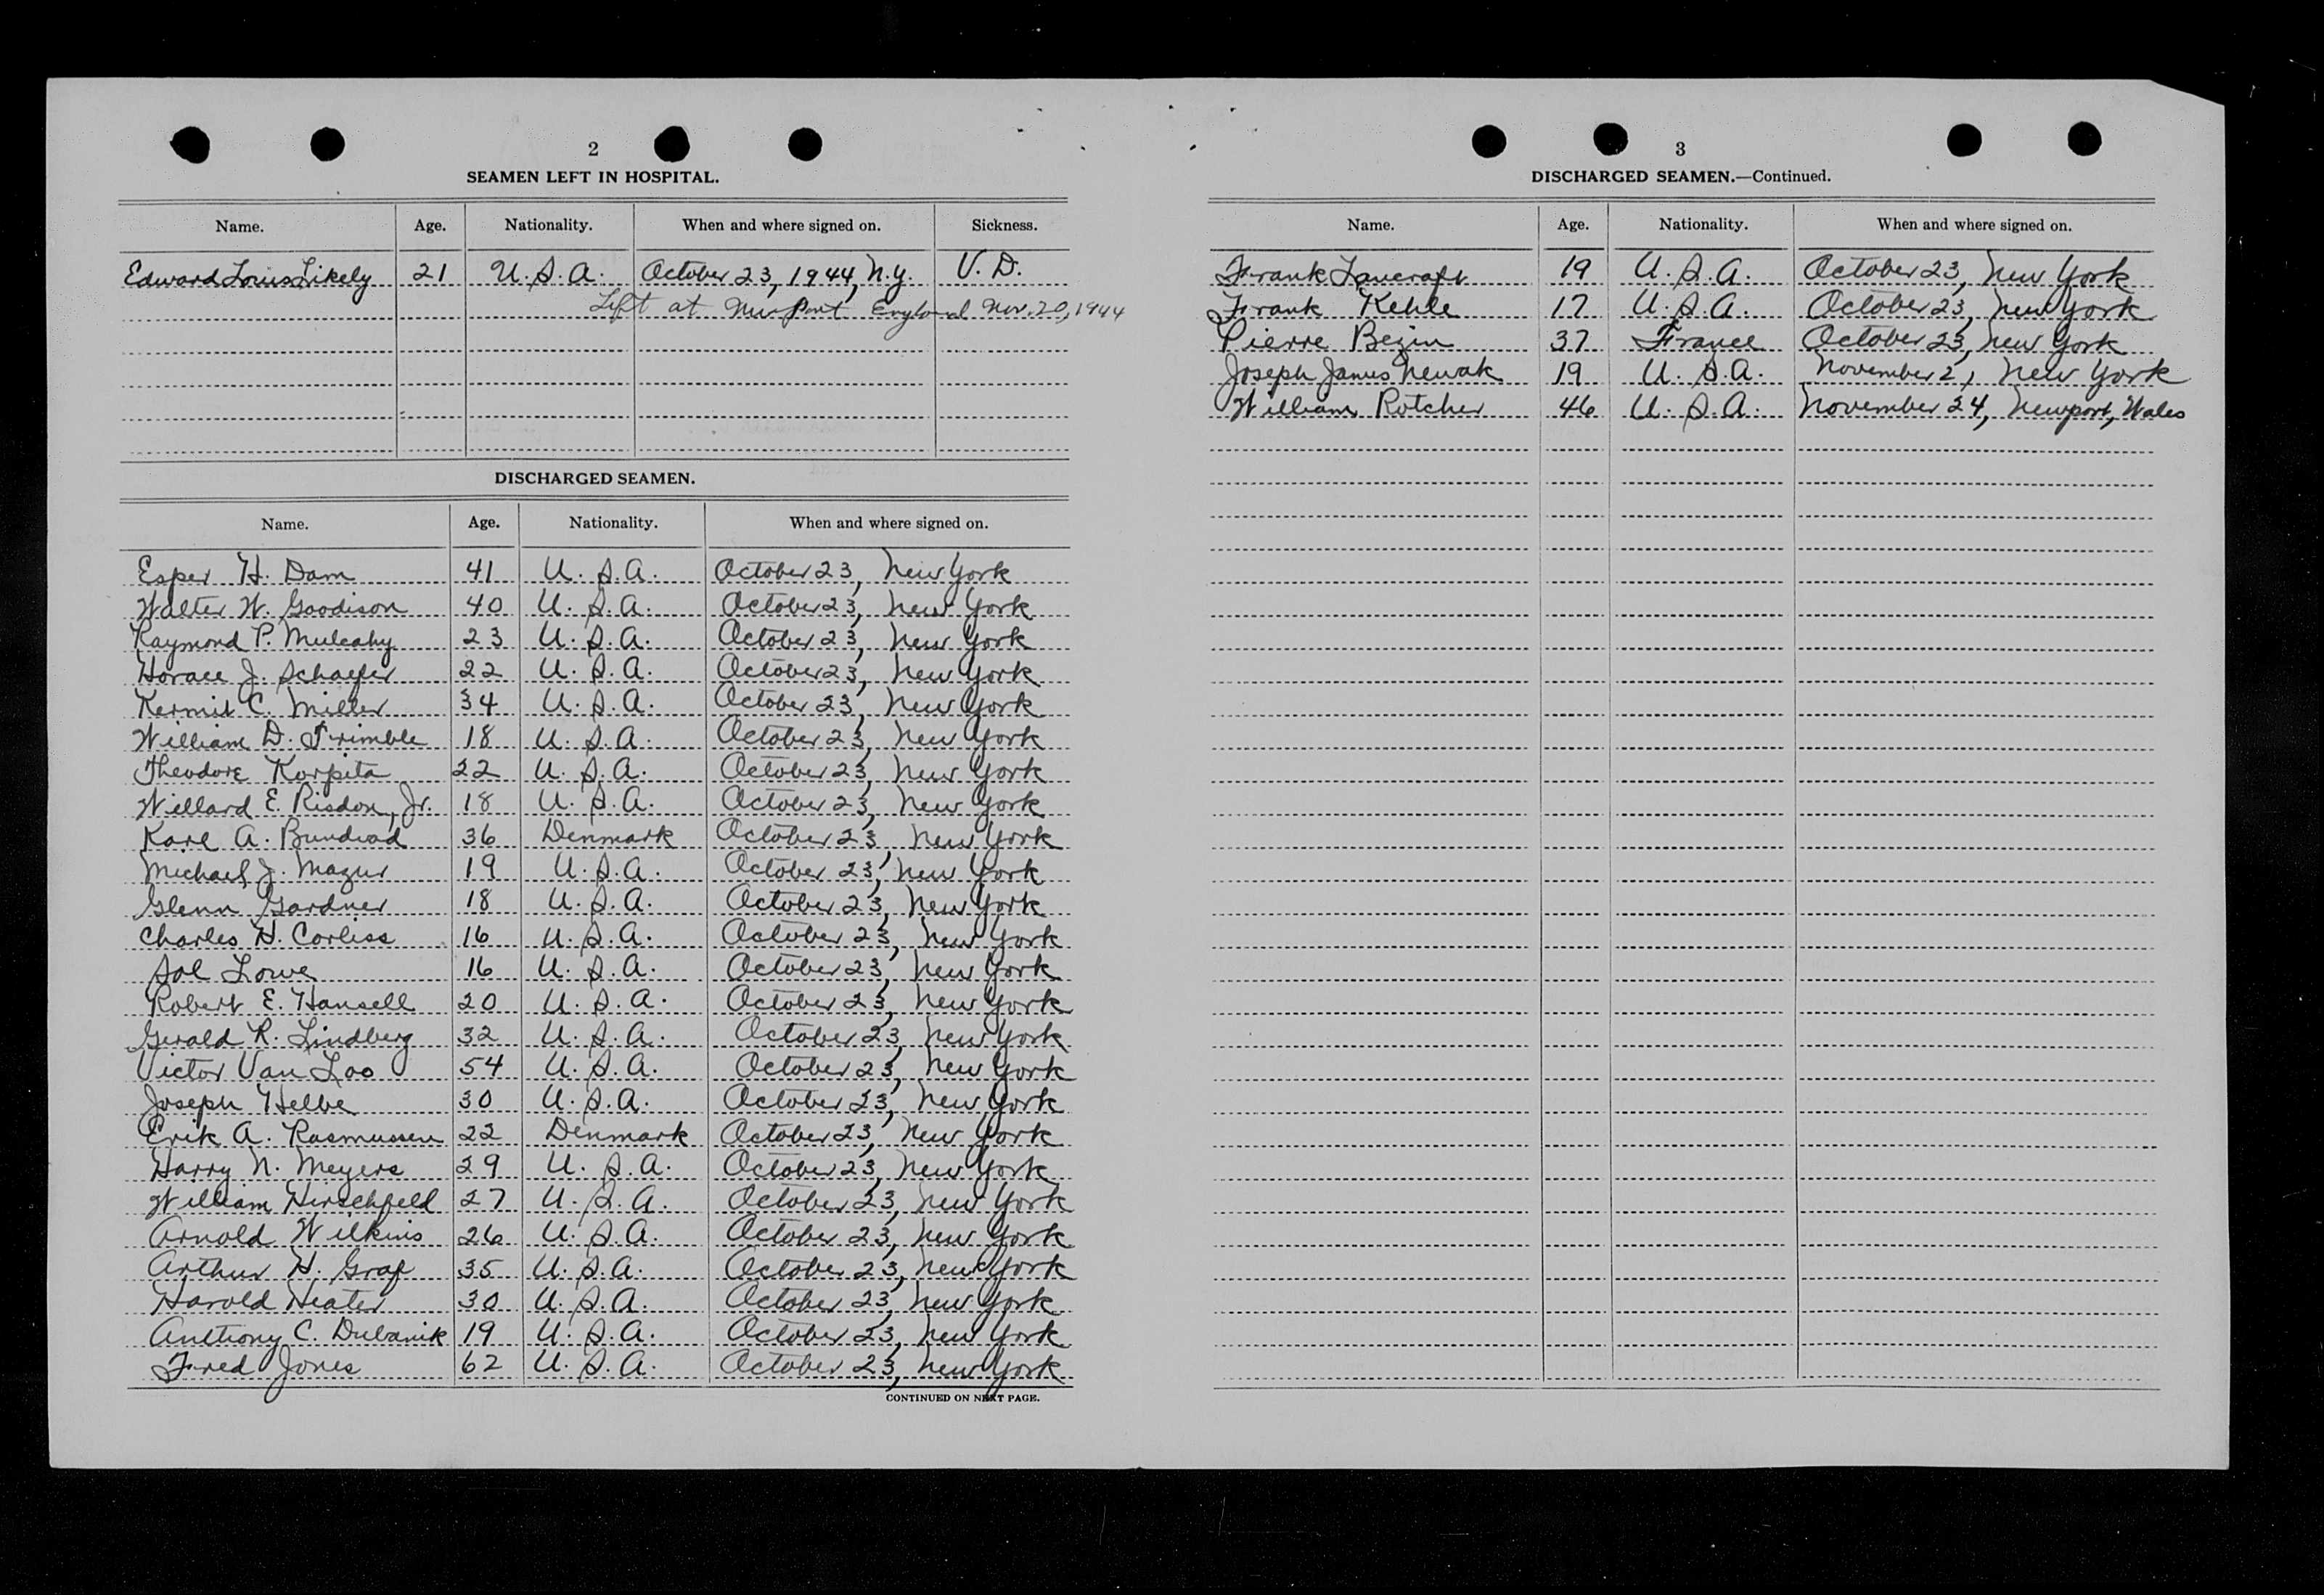 2
SEAMEN LEFT IN HOSPITAL.
Name. Age. Nationality. When and where signed on. Sickness.
Edward Louis Likely 21 U.S.A. October 23, 1944, N.Y. V.D.
Left at Newport England Nov. 20, 1944
DISCHARGED SEAMEN.
Name. Age. Nationality. When and where signed on.
Esper H. Dam 41 U.S.A. October 23, New York
Walter W. Goodison 40 U.S.A. October 23, New York
Raymond P. Mulcahy 23 U.S.A. October 23, New York
Horace J. Schaefer 22 U.S.A. October 23, New York
Kermit C. Miller 34 U.S.A. October 23, New York
William D. Trimble 18 U.S.A. October 23, New York
Theodore Korpita 22 U.S.A. October 23, New York
Willard E. Risdon, Jr. 18 U.S.A. October 23, New York
Karl A. Bundvad 36 Denmark October 23, New York
Michael J. Mazur 19 U.S.A. October 23, New York
Glenn Gardner 18 U.S.A. October 23, New York
Charles H. Corliss 16 U.S.A. October 23, New York
Sol Lowe 16 U.S.A. October 23, New York
Robert E. Hansell 20 U.S.A. October 23, New York
Gerald R. Lindberg 32 U.S.A. October 23, New York
Victor Van Loo 54 U.S.A. October 23, New York
Joseph Helbe 30 U.S.A. October 23, New York
Erik A. Rasmussen 22 Denmark October 23, New York
Harry N. Meyers 29 U.S.A. October 23, New York
William Hirschfeld 27 U.S.A. October 23, New York
Arnold Wilkins 26 U.S.A. October 23, New York
Arthur H. Graf 35 U.S.A. October 23, New York
Harold Heater 30 U.S.A. October 23, New York
Anthony C. Dubanik 19 U.S.A. October 23, New York
Fred Jones 62 U.S.A. October 23, New York
CONTINUED ON NEXT PAGE.
3
DISCHARGED SEAMEN.—Continued.
Name. Age. Nationality. When and where signed on.
Frank 19 U.S.A. October 23, New York
Frank Kehle 17 U.S.A. October 23, New York
Pierre Bezin 37 France October 23, New York
Joseph James Newak 19 U.S.A. November 2, New York
William Rotcher 46 U.S.A. November 24, Newport, Wales